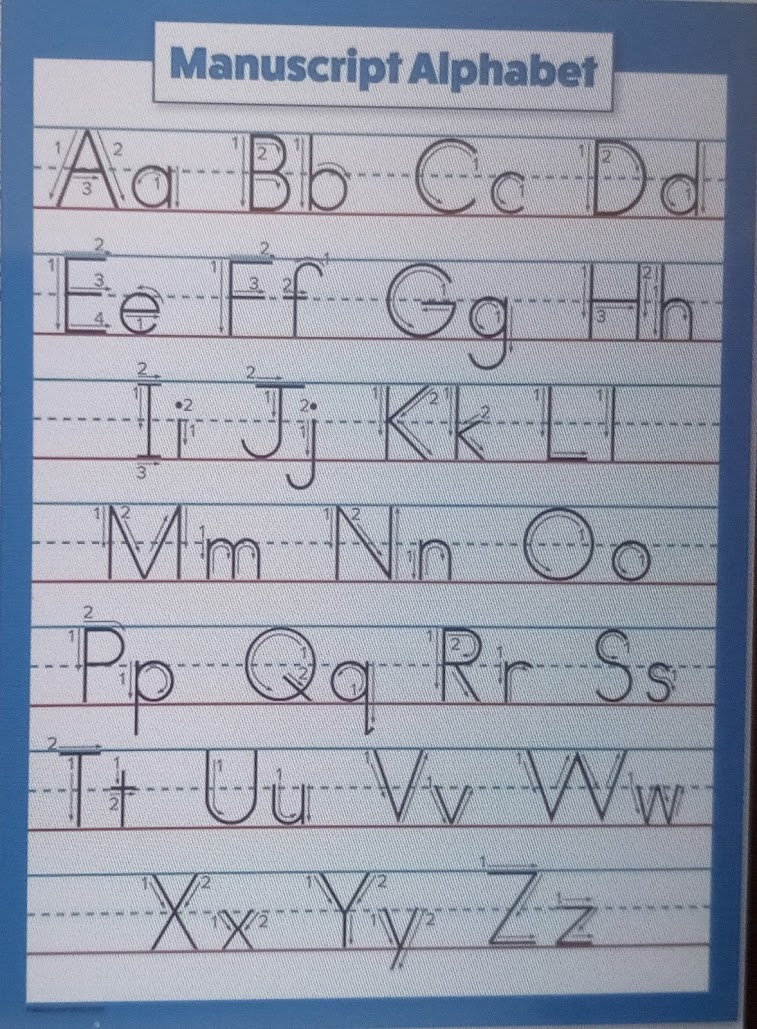 Manuscript Alphabet
Aa Bb Cc Dd
Ee Ff Gg Hh
Ii Jj Kk Ll
Mm Nn Oo
Pp Qq Rr Ss
Tt Uu Vv Ww
Xx Yy Zz